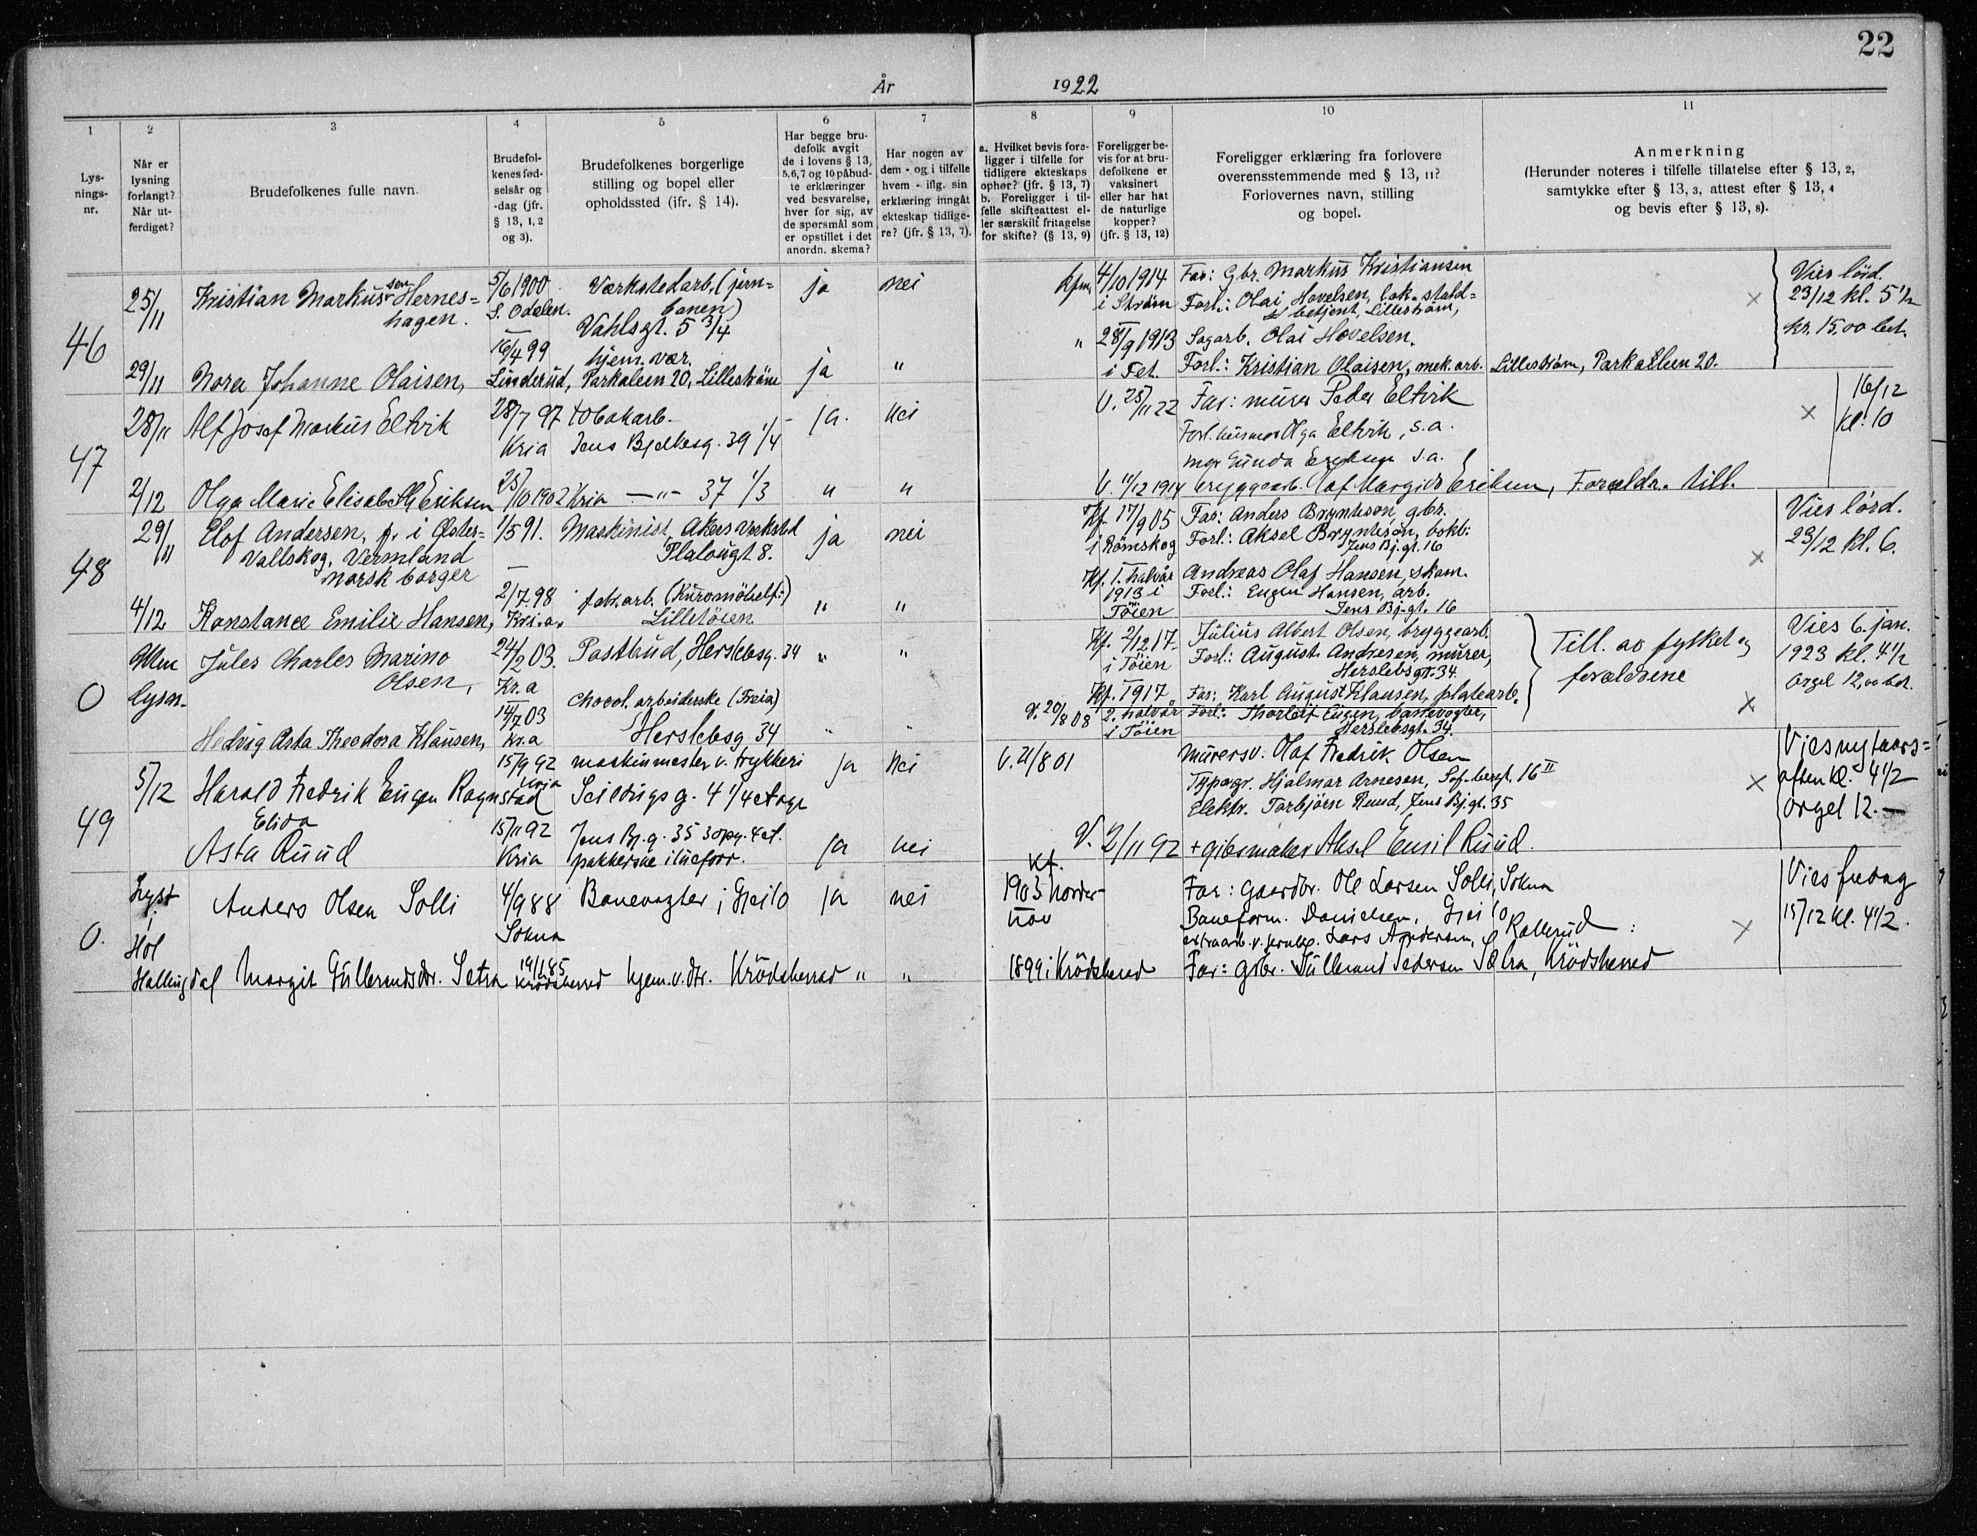 22
År 1922
1 2 3 4 5 6 7 8 9 10 11
Lys-
nings-
nr.
Når er
lysning
forlangt?
Når ut-
ferdiget?
Brudefolkenes fulle navn.
Brudefol-
kenes fød-
selsår og
-dag (jfr.
§ 13, 1, 2
og 3).
Brudefolkenes borgerlige
stilling og bopel eller
opholdssted (ifr. § 14).
Har begge bru-
defolk avgit
de i lovens § 13,
5,6,7 og 10 påbud-
te erklæringer
ved besvarelse,
hver for sig, av
de spørsmål som
er opstillet i det
anordn. skema?
Har nogen av
dem - og i tilfelle
hvem - iflg. sin
erklæring inngåt
ekteskap tidlige-
re? (jfr. § 13, 7).
a. Hvilket bevis fore-
ligger i tilfelle for
tidligere ekteskaps
ophør? (jfr. § 13, 7)
b. Foreligger i til-
felle skifteattest el-
ler særskilt fritagelse
for skifte? (§ 13, 9)
Foreligger be-
vis for at bru-
defolkene er
vaksinert
eller har hat
de naturlige
kopper?
(jfr. § 13, 12)
Foreligger erklæring fra forlovere
overensstemmende med § 13, 11?
Forlovernes navn, stilling
og bopel.
Anmerkning
(Herunder noteres i tilfelle tillatelse efter § 13, 2,
samtykke efter § 13, 3, attest efter § 13, 4
og bevis efter § 13, 8).
46
25/11
Kristian Markussen Hernes=
hagen.
5/6 1900
S. Odalen.
Værkstedarb. (jern=
banen)
Vahlsgt. 5 3/4
ja
nei
Kfm. 4/10 1914
i Strøm
Far: Gbr. Markus Kristiansen
Forl.: Olai Hovelsen, lok. stald=
betjent, Lillestrøm,
×
Vies lørd.
23/12 kl. 5 1/2
kr. 15,00 bet.
29/11
Nora Johanne Olaisen,
16/4 99
Linderud,
hjem. vær.
Parkaleen 20, Lillestrøm
ja
"
" 28/9 1913
i Fet.
Sagarb. Olai Hovelsen.
Forl.: Kristian Olaisen, mek. arb. Lillestrøm, Parkalleen 20.
47
28/11
Alf Josef Markus Eltvik
28/7 97
Kria
Tobakarb.
Jens Bjelkesg. 39 1/4
ja.
nei
V. 25/11 22
Far: murer Peder Eltvik
Forl. husmor Olga Eltvik, s.a.
Gunda Eriksen s.a.
×
16/12
kl. 10
2/12
Olga Marie Elisabeth Eriksen
25/10 1902 Kria
—"— 37 1/3
"
"
V. 11/12 1914
bryggearb. Olaf Margido Eriksen, Forældr. till.
48
29/11
Elof Andersen, f. i Øster=
Vallskog, Vermland
norsk borger
1/5 91.
Maskinist, Akers Værksted
Platougt 8.
ja
nei
Kf. 17/9 05
i Rømskog
Far: Anders Bryntesøn, gbr.
Forl.: Aksel Bryntesøn, bokb.
Jens Bj. gt. 16
×
Vies lørd.
23/12 kl. 6.
4/12
Konstance Emilie Hansen,
2/7. 98
Kr.a.
fabr.arb.
Lilletøien
"
"
Kf. 1. halvår
1913 i
Tøien
Andreas Olaf Hansen, skom.
Forl.: Eugen Hansen, arb.
Jens Bj. gt. 16
0
Uten
lysn.
Jules Charles Marino
Olsen,
24/2 03.
Kr.a
Postbud, Herslebsg. 34
"
"
Kf. 2/12 17.
i Tøien
Julius Albert Olsen, bryggearb.
Forl.: August Andresen, murer,
Herslebsgt. 34.
Till. av fylket og
forældrene
×
Vies 6. jan.
1923 kl. 4 1/2
Orgel 12,00 bet.
Hedvig Asta Theodora Klausen,
14/7 03
Kr.a
chocol. arbeiderske (Freia)
Herslebsg 34
"
"
V. 20/8 08
Kf. 1917
2. halvår
i Tøien
Far: Karl August Klausen, platearb.
Forl.: Thorleif Eugen,
Herslebsgt. 34.
49
5/12
Harald Fredrik Eugen Rognstad
15/9 92
Kria
maskinmester v. trykkeri
Seildugsg. 4 1/4
ja
nei
V. 21/8 01
Murersv. Olaf Fredrik Olsen
Typogr. Hjalmar Arnesen, Sof.bergt. 16 II
Elektr. Torbjørn Ruud, Jens Bj. gt. 35
×
Vies nytaars=
aften kl. 4 1/2
Orgel 12.—
Elida
Asta Ruud
15/11 92
Kria
Jens Bj. g. 35 3 opg. 4 et.
pakkerske
ja
nei
V. 2/11 92
+ gibsmaker Aksel Emil Ruud.
0.
Lyst
i
Hol
Anders Olsen Solli
4/9 88
Sokna
Banevogter i Gjeilo
ja
nei
Kf.
1903 Norder-
hov
Far: Gaardbr. Ole Larsen Solli, Sokna
Baneform. Danielsen, Gjeilo
extraarb. v. jernb. Lars Andersen, Rallerud
×
Vies fredag
15/12 kl. 4 1/2.
Hallingdal
Margit Gullermdsdtr. Setra
19/11 85
Krødsherred
hjem.v. dtr. Krødsherrad
"
"
1899 i Krødsherred
Far: Gbr. Gullerund Pedersen Sætra, Krødsherred